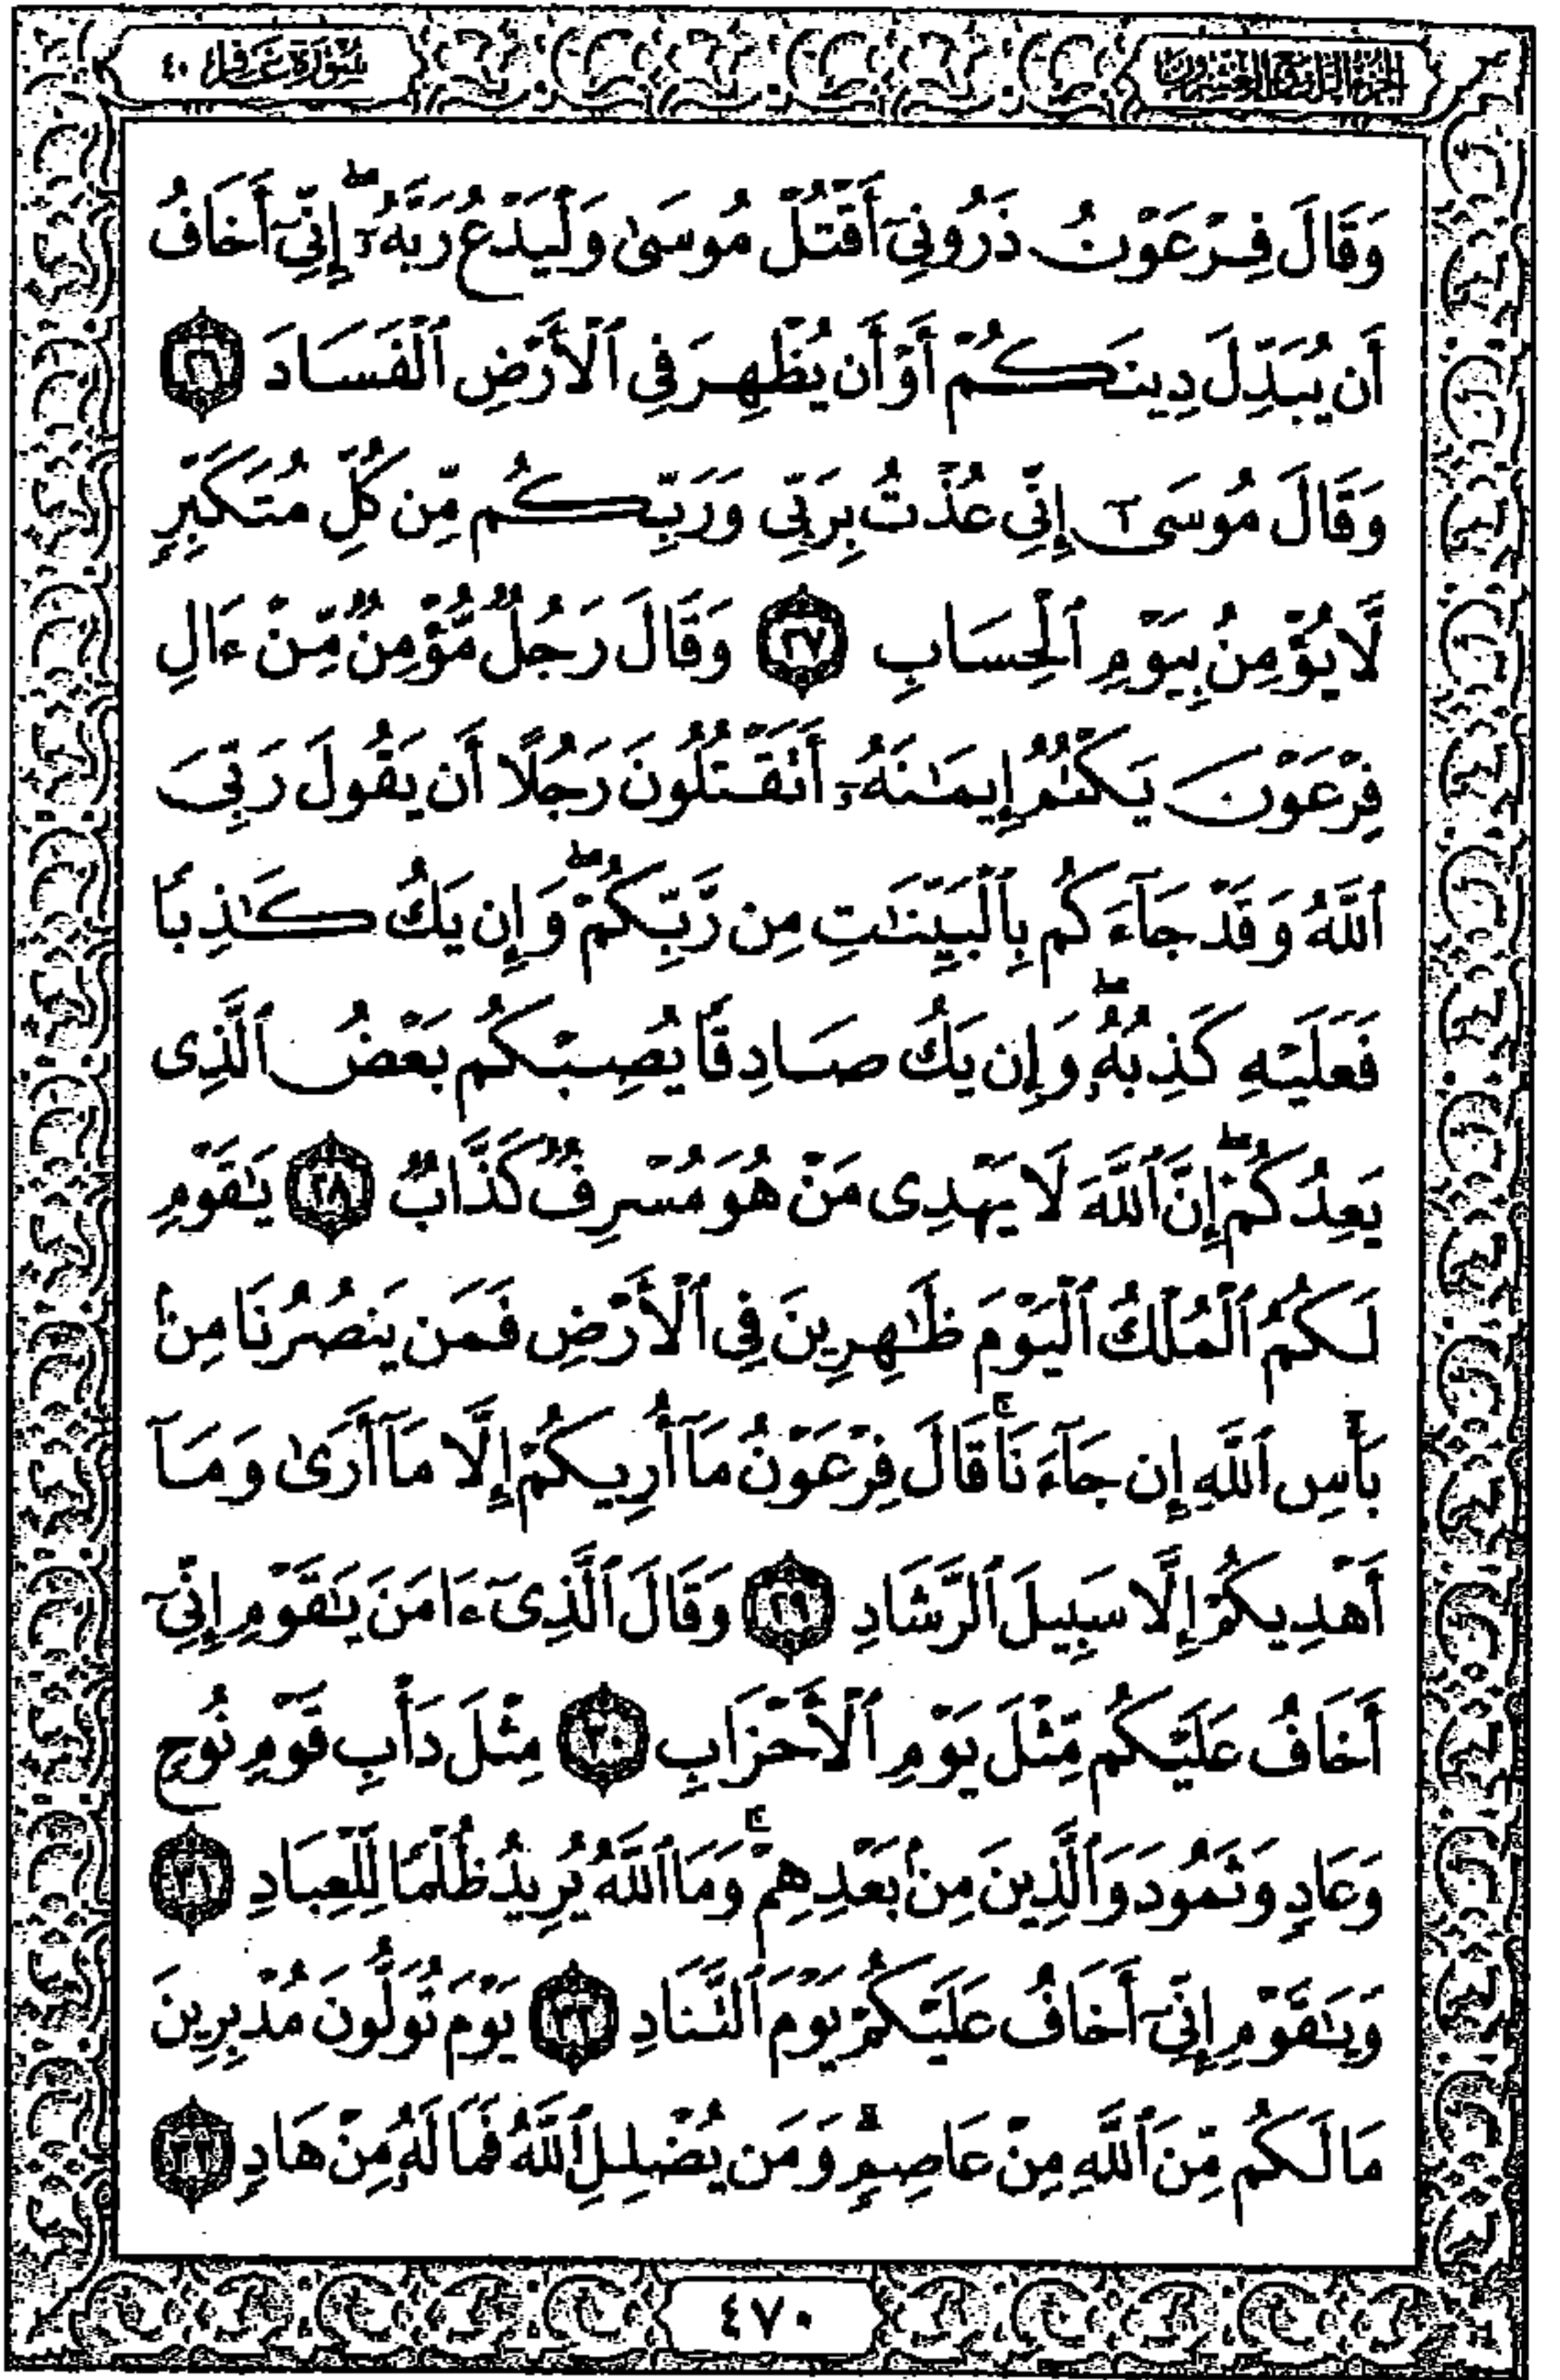 الجزء الرابع والعشرون
سورة غافر ٤٠
وَقَالَ فِرْعَوْنُ ذَرُونِىٓ أَقْتُلْ مُوسَىٰ وَلْيَدْعُ رَبَّهُۥٓ ۖ إِنِّىٓ أَخَافُ
أَن يُبَدِّلَ دِينَكُمْ أَوْ أَن يُظْهِرَ فِى ٱلْأَرْضِ ٱلْفَسَادَ ٢٦
وَقَالَ مُوسَىٰٓ إِنِّى عُذْتُ بِرَبِّى وَرَبِّكُم مِّن كُلِّ مُتَكَبِّرٍ
لَّا يُؤْمِنُ بِيَوْمِ ٱلْحِسَابِ ٢٧ وَقَالَ رَجُلٌ مُّؤْمِنٌ مِّنْ ءَالِ
فِرْعَوْنَ يَكْتُمُ إِيمَٰنَهُۥٓ أَتَقْتُلُونَ رَجُلًا أَن يَقُولَ رَبِّىَ
ٱللَّهُ وَقَدْ جَآءَكُم بِٱلْبَيِّنَٰتِ مِن رَّبِّكُمْ ۖ وَإِن يَكُ كَٰذِبًا
فَعَلَيْهِ كَذِبُهُۥ ۖ وَإِن يَكُ صَادِقًا يُصِبْكُم بَعْضُ ٱلَّذِى
يَعِدُكُمْ ۖ إِنَّ ٱللَّهَ لَا يَهْدِى مَنْ هُوَ مُسْرِفٌ كَذَّابٌ ٢٨ يَٰقَوْمِ
لَكُمُ ٱلْمُلْكُ ٱلْيَوْمَ ظَٰهِرِينَ فِى ٱلْأَرْضِ فَمَن يَنصُرُنَا مِنۢ
بَأْسِ ٱللَّهِ إِن جَآءَنَا ۚ قَالَ فِرْعَوْنُ مَآ أُرِيكُمْ إِلَّا مَآ أَرَىٰ وَمَآ
أَهْدِيكُمْ إِلَّا سَبِيلَ ٱلرَّشَادِ ٢٩ وَقَالَ ٱلَّذِىٓ ءَامَنَ يَٰقَوْمِ إِنِّىٓ
أَخَافُ عَلَيْكُم مِّثْلَ يَوْمِ ٱلْأَحْزَابِ ٣٠ مِثْلَ دَأْبِ قَوْمِ نُوحٍ
وَعَادٍ وَثَمُودَ وَٱلَّذِينَ مِنۢ بَعْدِهِمْ ۚ وَمَا ٱللَّهُ يُرِيدُ ظُلْمًا لِّلْعِبَادِ ٣١
وَيَٰقَوْمِ إِنِّىٓ أَخَافُ عَلَيْكُمْ يَوْمَ ٱلتَّنَادِ ٣٢ يَوْمَ تُوَلُّونَ مُدْبِرِينَ
مَا لَكُم مِّنَ ٱللَّهِ مِنْ عَاصِمٍ ۗ وَمَن يُضْلِلِ ٱللَّهُ فَمَا لَهُۥ مِنْ هَادٍ ٣٣
٤٧٠